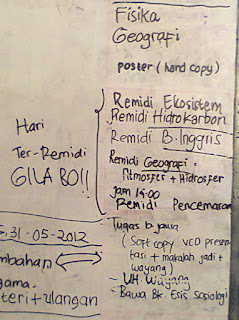 Fisika
Geografi
poster (hard copy)
Hari
Ter-Remidi
GILA BO!!
Remidi Ekosistem
Remidi Hidrokarbon
Remidi B. Inggris
Remidi Geografi.
Atmosfer + Hidrosfer
jam 14.00
Remidi Pencemaran
31-05-2012
mbahan
gama.
teri + ulangan
Tugas b. jawa
(Soft copy VCD presen
tasi + makalah jadi +
wayang)
- UH. Wayang
- Bawa Bk Esis Sosiologi